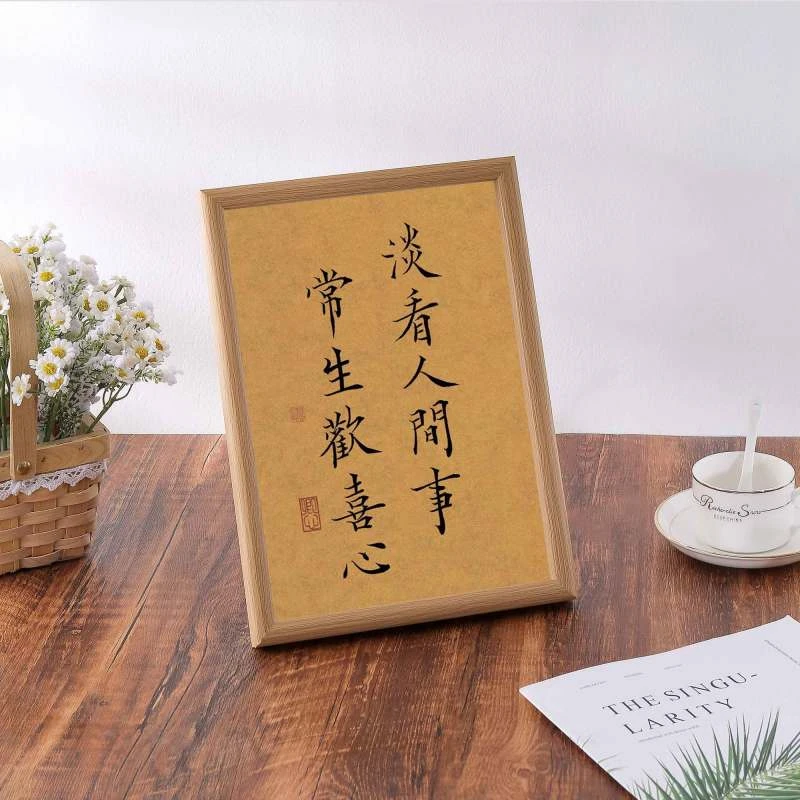 淡看人間事
常生歡喜心
THE SINGU-
LARITY